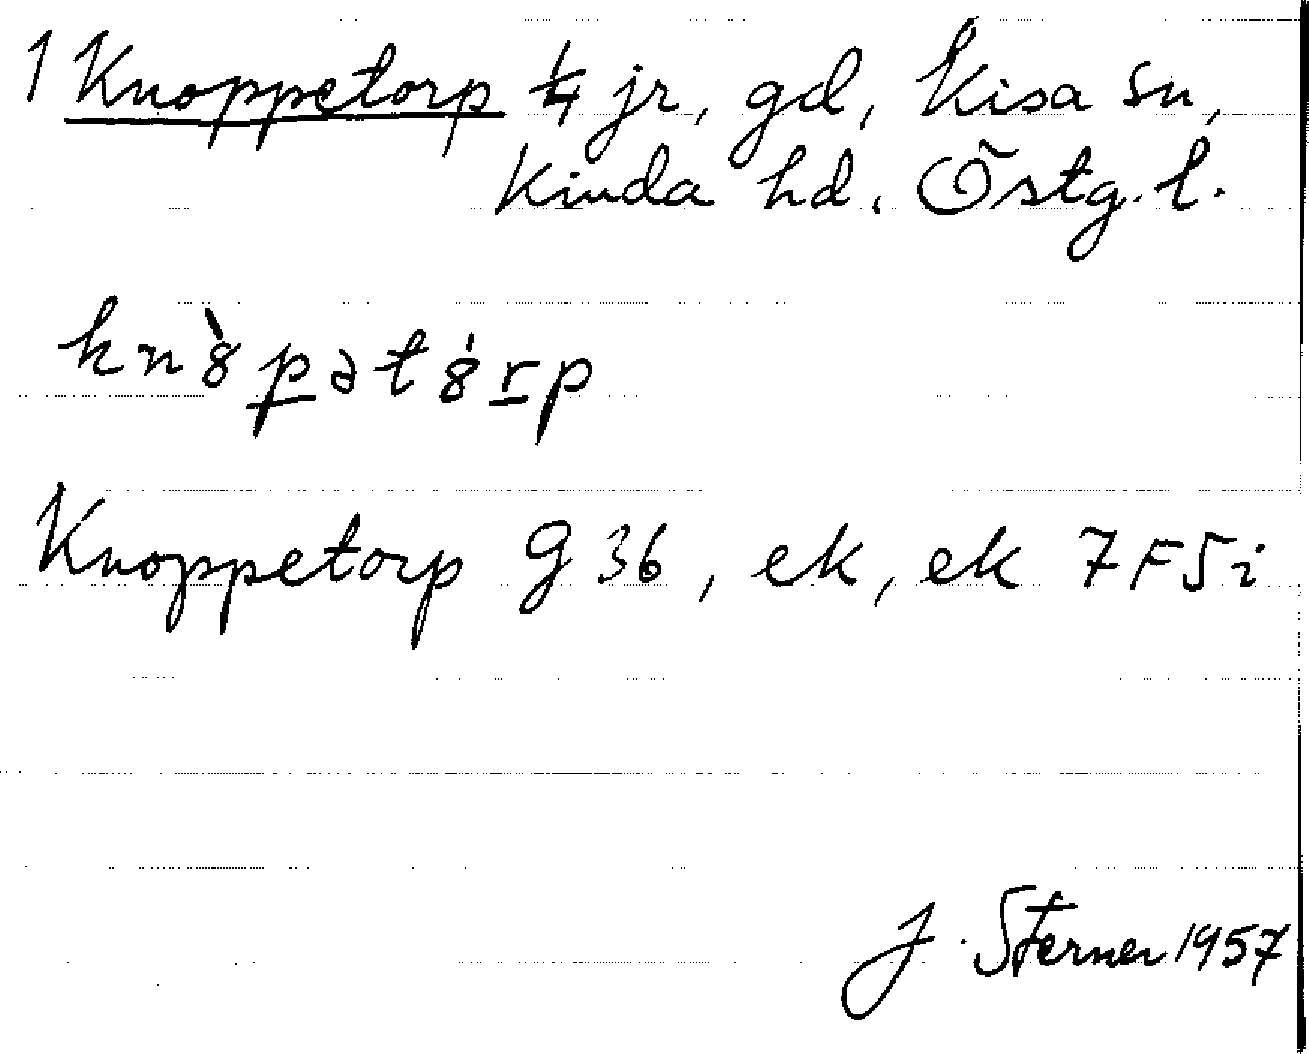 1 Knoppetorp 1/4 jr, gd, Kisa sn,
Kinda hd, Östg. l.
kn8̀p̲ət8́r̲p
Knoppetorp G 36, ek, ek 7F5i
J. Sterner 1957